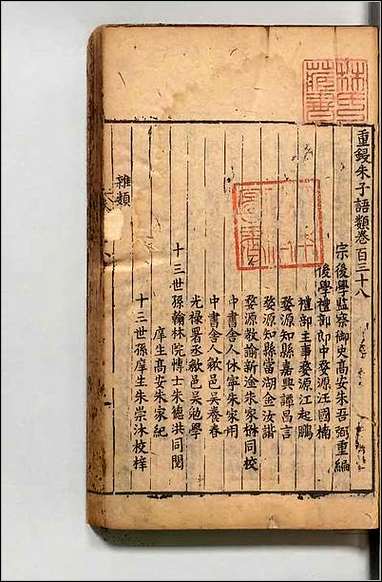 重鋟朱子語類卷百三十八
宗後學監察御史高安朱吾弼重編
後學禮部郎中婺源汪國楠
禮部主事婺源江起鵬
婺源知縣嘉興譚昌言
婺源知縣當湖金汝諧
婺源教諭新淦朱家楙同校
中書舍人休寧朱家用
中書舍人歙邑吳養春
光祿署丞歙邑吳勉學
十三世孫翰林院博士朱德洪同閱
庠生高安朱家紀
十三世孫庠生朱崇沐校梓
雜類
林氏藏書